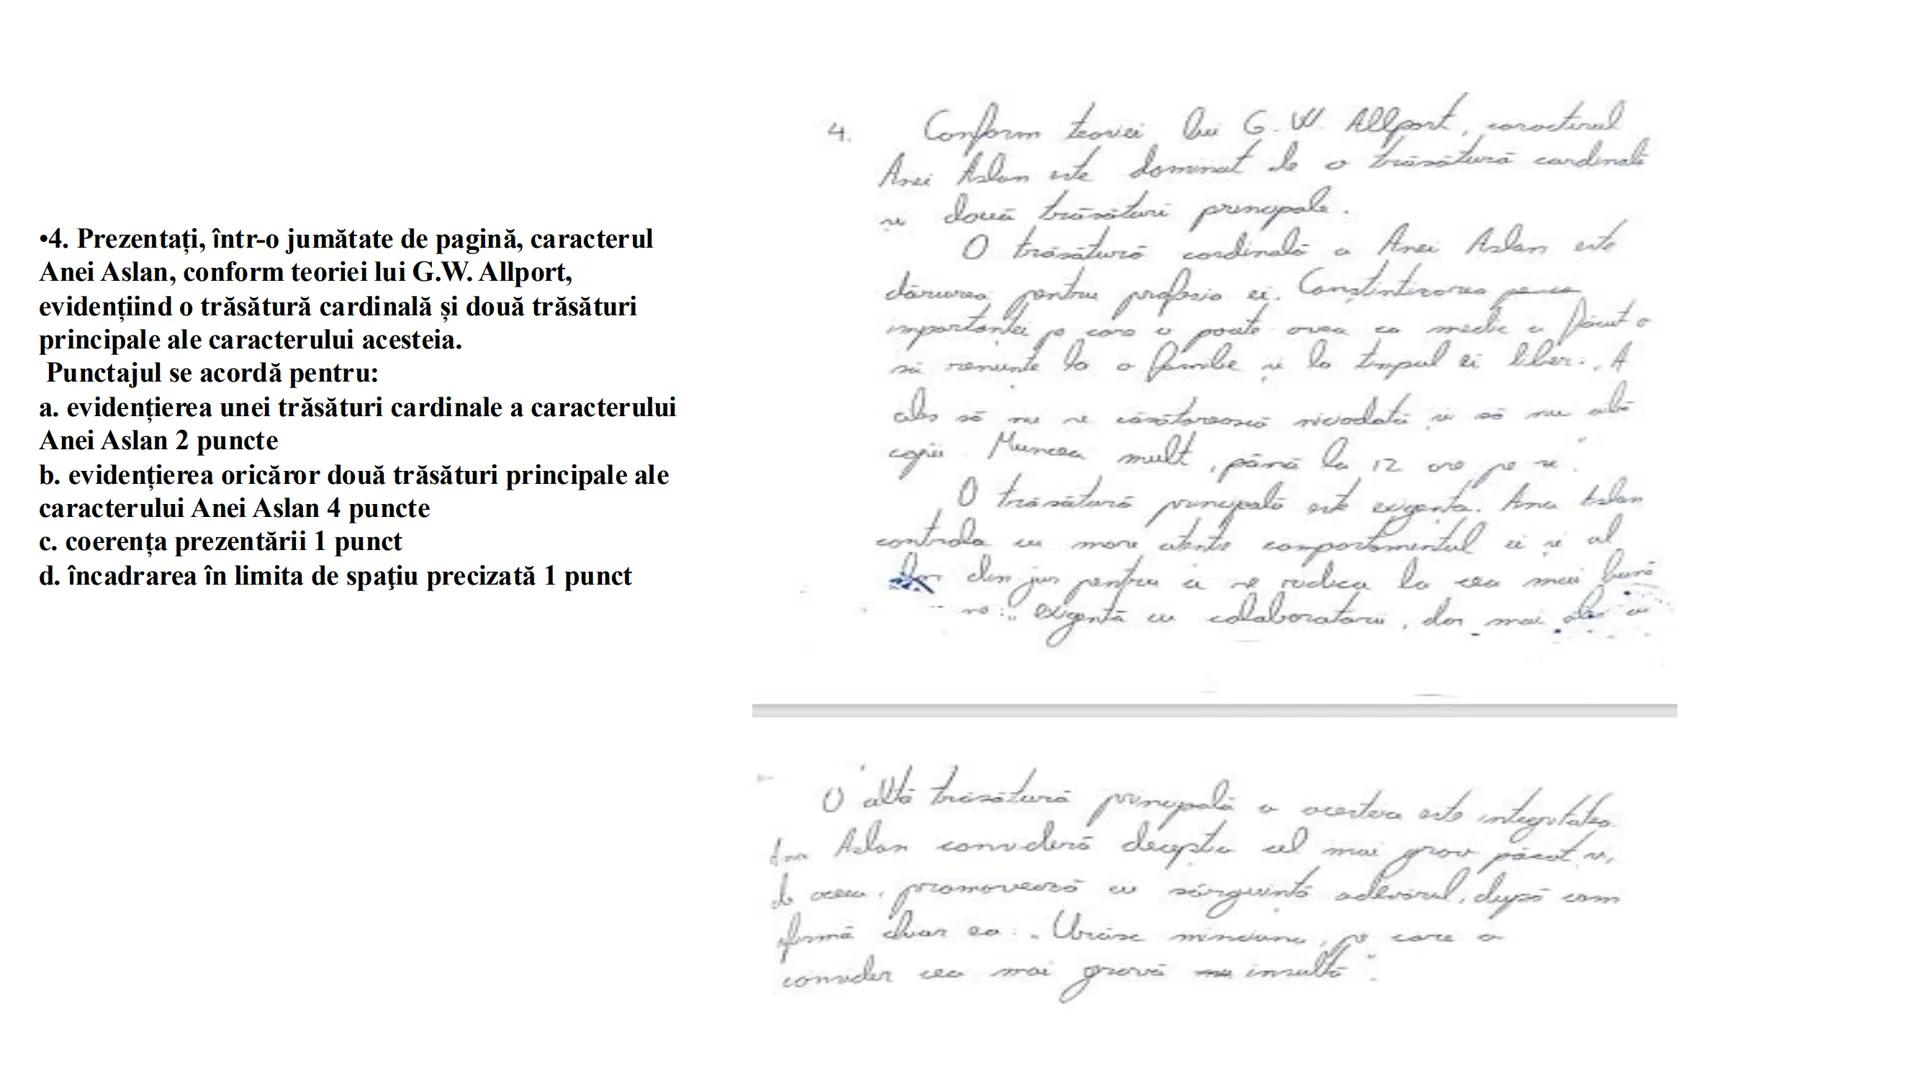 •4. Prezentați, într-o jumătate de pagină, caracterul
Anei Aslan, conform teoriei lui G.W. Allport,
evidențiind o trăsătură cardinală și două trăsături
principale ale caracterului acesteia.
Punctajul se acordă pentru:
a. evidențierea unei trăsături cardinale a caracterului
Anei Aslan 2 puncte
b. evidențierea oricăror două trăsături principale ale
caracterului Anei Aslan 4 puncte
c. coerența prezentării 1 punct
d. încadrarea în limita de spațiu precizată 1 punct
4. Conform teoriei lui G. W. Allport, caracterul
Anei Aslan este dominat de o trăsătură cardinală
și două trăsături principale.
O trăsătură cardinală a Anei Aslan este
dăruirea pentru profesia ei. Conștientizarea
importanței pe care o poate avea ca medic a făcut-o
să renunțe la o familie și la timpul ei liber: „A
ales să nu se căsătorească niciodată și să nu aibă
copii. Muncea mult, până la 12 ore pe zi."
O trăsătură principală este exigența. Ana Aslan
controla cu mare atenție comportamentul ei și al
din jur pentru a se ridica la cea mai bună
„exigentă cu colaboratorii, dar mai ales cu
O altă trăsătură principală a acesteia este integritatea.
Ana Aslan consideră decepția cel mai grav păcat și,
de aceea, promovează cu sârguință adevărul, după cum
afirmă chiar ea: „Urăsc minciuna, pe care o
consider cea mai gravă insultă".